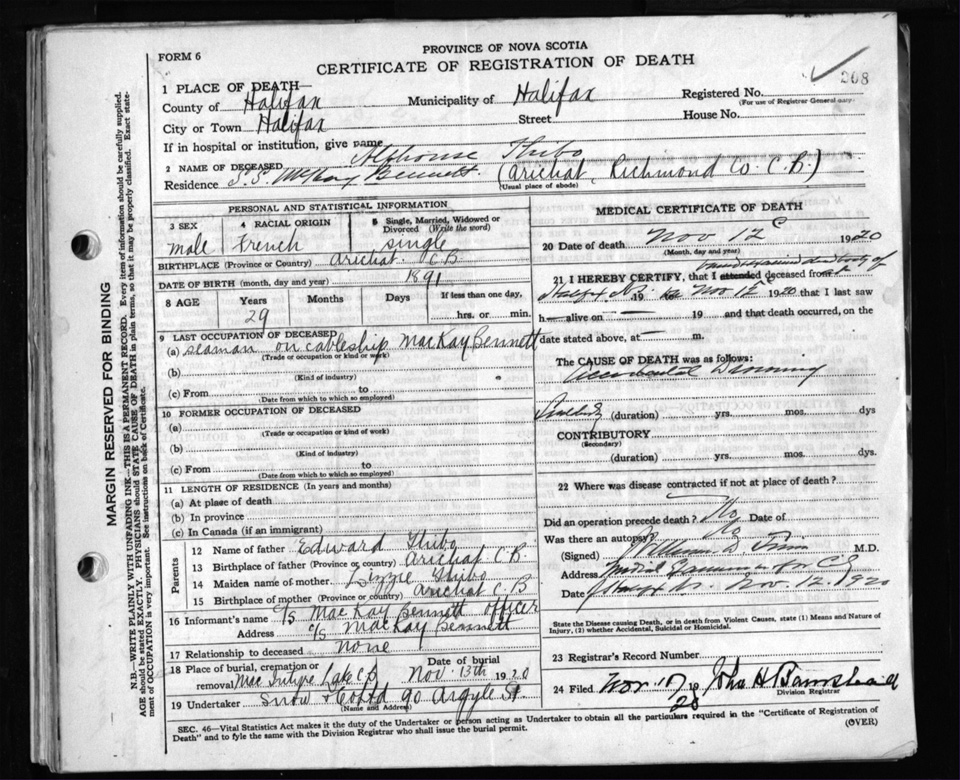 PROVINCE OF NOVA SCOTIA
FORM 6
CERTIFICATE OF REGISTRATION OF DEATH
208
1 PLACE OF DEATH
County of Halifax Municipality of Halifax Registered No.
(For use of Registrar General only)
City or Town Halifax Street House No.
If in hospital or institution, give name
2 NAME OF DECEASED Alfhouse Thibo
Residence S.S. McKay Bennett. (Arichat, Richmond Co. C.B.)
(Usual place of abode)
PERSONAL AND STATISTICAL INFORMATION
3 SEX male
4 RACIAL ORIGIN French
5 Single, Married, Widowed or Divorced (Write the word) single
BIRTHPLACE (Province or Country) Arichat. C.B
DATE OF BIRTH (month, day and year) 1891
8 AGE Years Months Days If less than one day,
29 hrs. or min.
9 LAST OCCUPATION OF DECEASED
(a) seaman on cableship MacKay Bennett
(Trade or occupation or kind or work)
(b)
(Kind of industry)
(c) From to
(Date from which to which so employed)
10 FORMER OCCUPATION OF DECEASED
(a)
(Trade or occupation or kind of work)
(b)
(Kind of industry)
(c) From to
(Date from which to which so employed)
11 LENGTH OF RESIDENCE (In years and months)
(a) At place of death
(b) In province
(c) In Canada (if an immigrant)
Parents
12 Name of father Edward Thibo
13 Birthplace of father (Province or country) Arichat C B
14 Maiden name of mother Lizzie Thibo
15 Birthplace of mother (Province or country) Arichat C B
16 Informant's name C/S MacKay Bennett officer
Address C/S MacKay Bennett
17 Relationship to deceased none
18 Place of burial, cremation or removal Date of burial
Mac Intyre Lake CB Nov. 13th 1920
19 Undertaker Snow & Co Ltd 90 Argyle St.
(Name and Address)
MEDICAL CERTIFICATE OF DEATH
20 Date of death Nov 12 1920
(Month, day and year)
21 I HEREBY CERTIFY, that I attended deceased from
dead body of
19 Nov 12 1920 that I last saw
h alive on 19 and that death occurred, on the
date stated above, at m.
The CAUSE OF DEATH was as follows:
Accidental Drowning
(duration) yrs. mos. dys
CONTRIBUTORY
(Secondary)
(duration) yrs. mos. dys.
22 Where was disease contracted if not at place of death?
Did an operation precede death? No Date of
Was there an autopsy? No
(Signed) William D Finn M.D.
Address Medical Examiner
Date Nov. 12, 1920
State the Disease causing Death, or in death from Violent Causes, state (1) Means and Nature of Injury, (2) whether Accidental, Suicidal or Homicidal.
23 Registrar's Record Number
24 Filed Nov 17 19 20 John H Barnstead
Division Registrar
SEC. 46—Vital Statistics Act makes it the duty of the Undertaker or person acting as Undertaker to obtain all the particulars required in the "Certificate of Registration of
Death" and to fyle the same with the Division Registrar who shall issue the burial permit.
(OVER)
MARGIN RESERVED FOR BINDING
N.B.—WRITE PLAINLY WITH UNFADING INK—THIS IS A PERMANENT RECORD. Every item of information should be carefully supplied.
AGE should be stated EXACTLY. PHYSICIANS should STATE CAUSE OF DEATH in plain terms, so that it may be properly classified. Exact statement of OCCUPATION is very important. See instructions on back of Certificate.